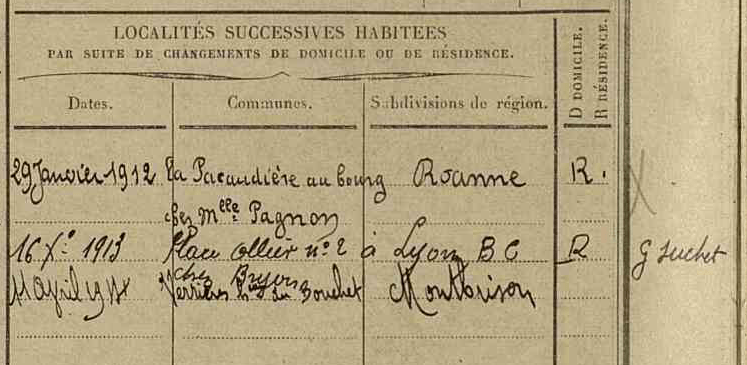 LOCALITÉS SUCCESSIVES HABITEES
PAR SUITE DE CHANGEMENTS DE DOMICILE OU DE RÉSIDENCE.
D DOMICILE.
R RÉSIDENCE.
Dates. Communes. Subdivisions de région.
29 Janvier 1912 La Pacaudière au bourg Roanne R.
chez Mlle Pagnon
16 Xe 1913 Place Ollier n° 2 à Lyon B C R G Suchet
chez
11 Avril 1914 Verrières Montbrison